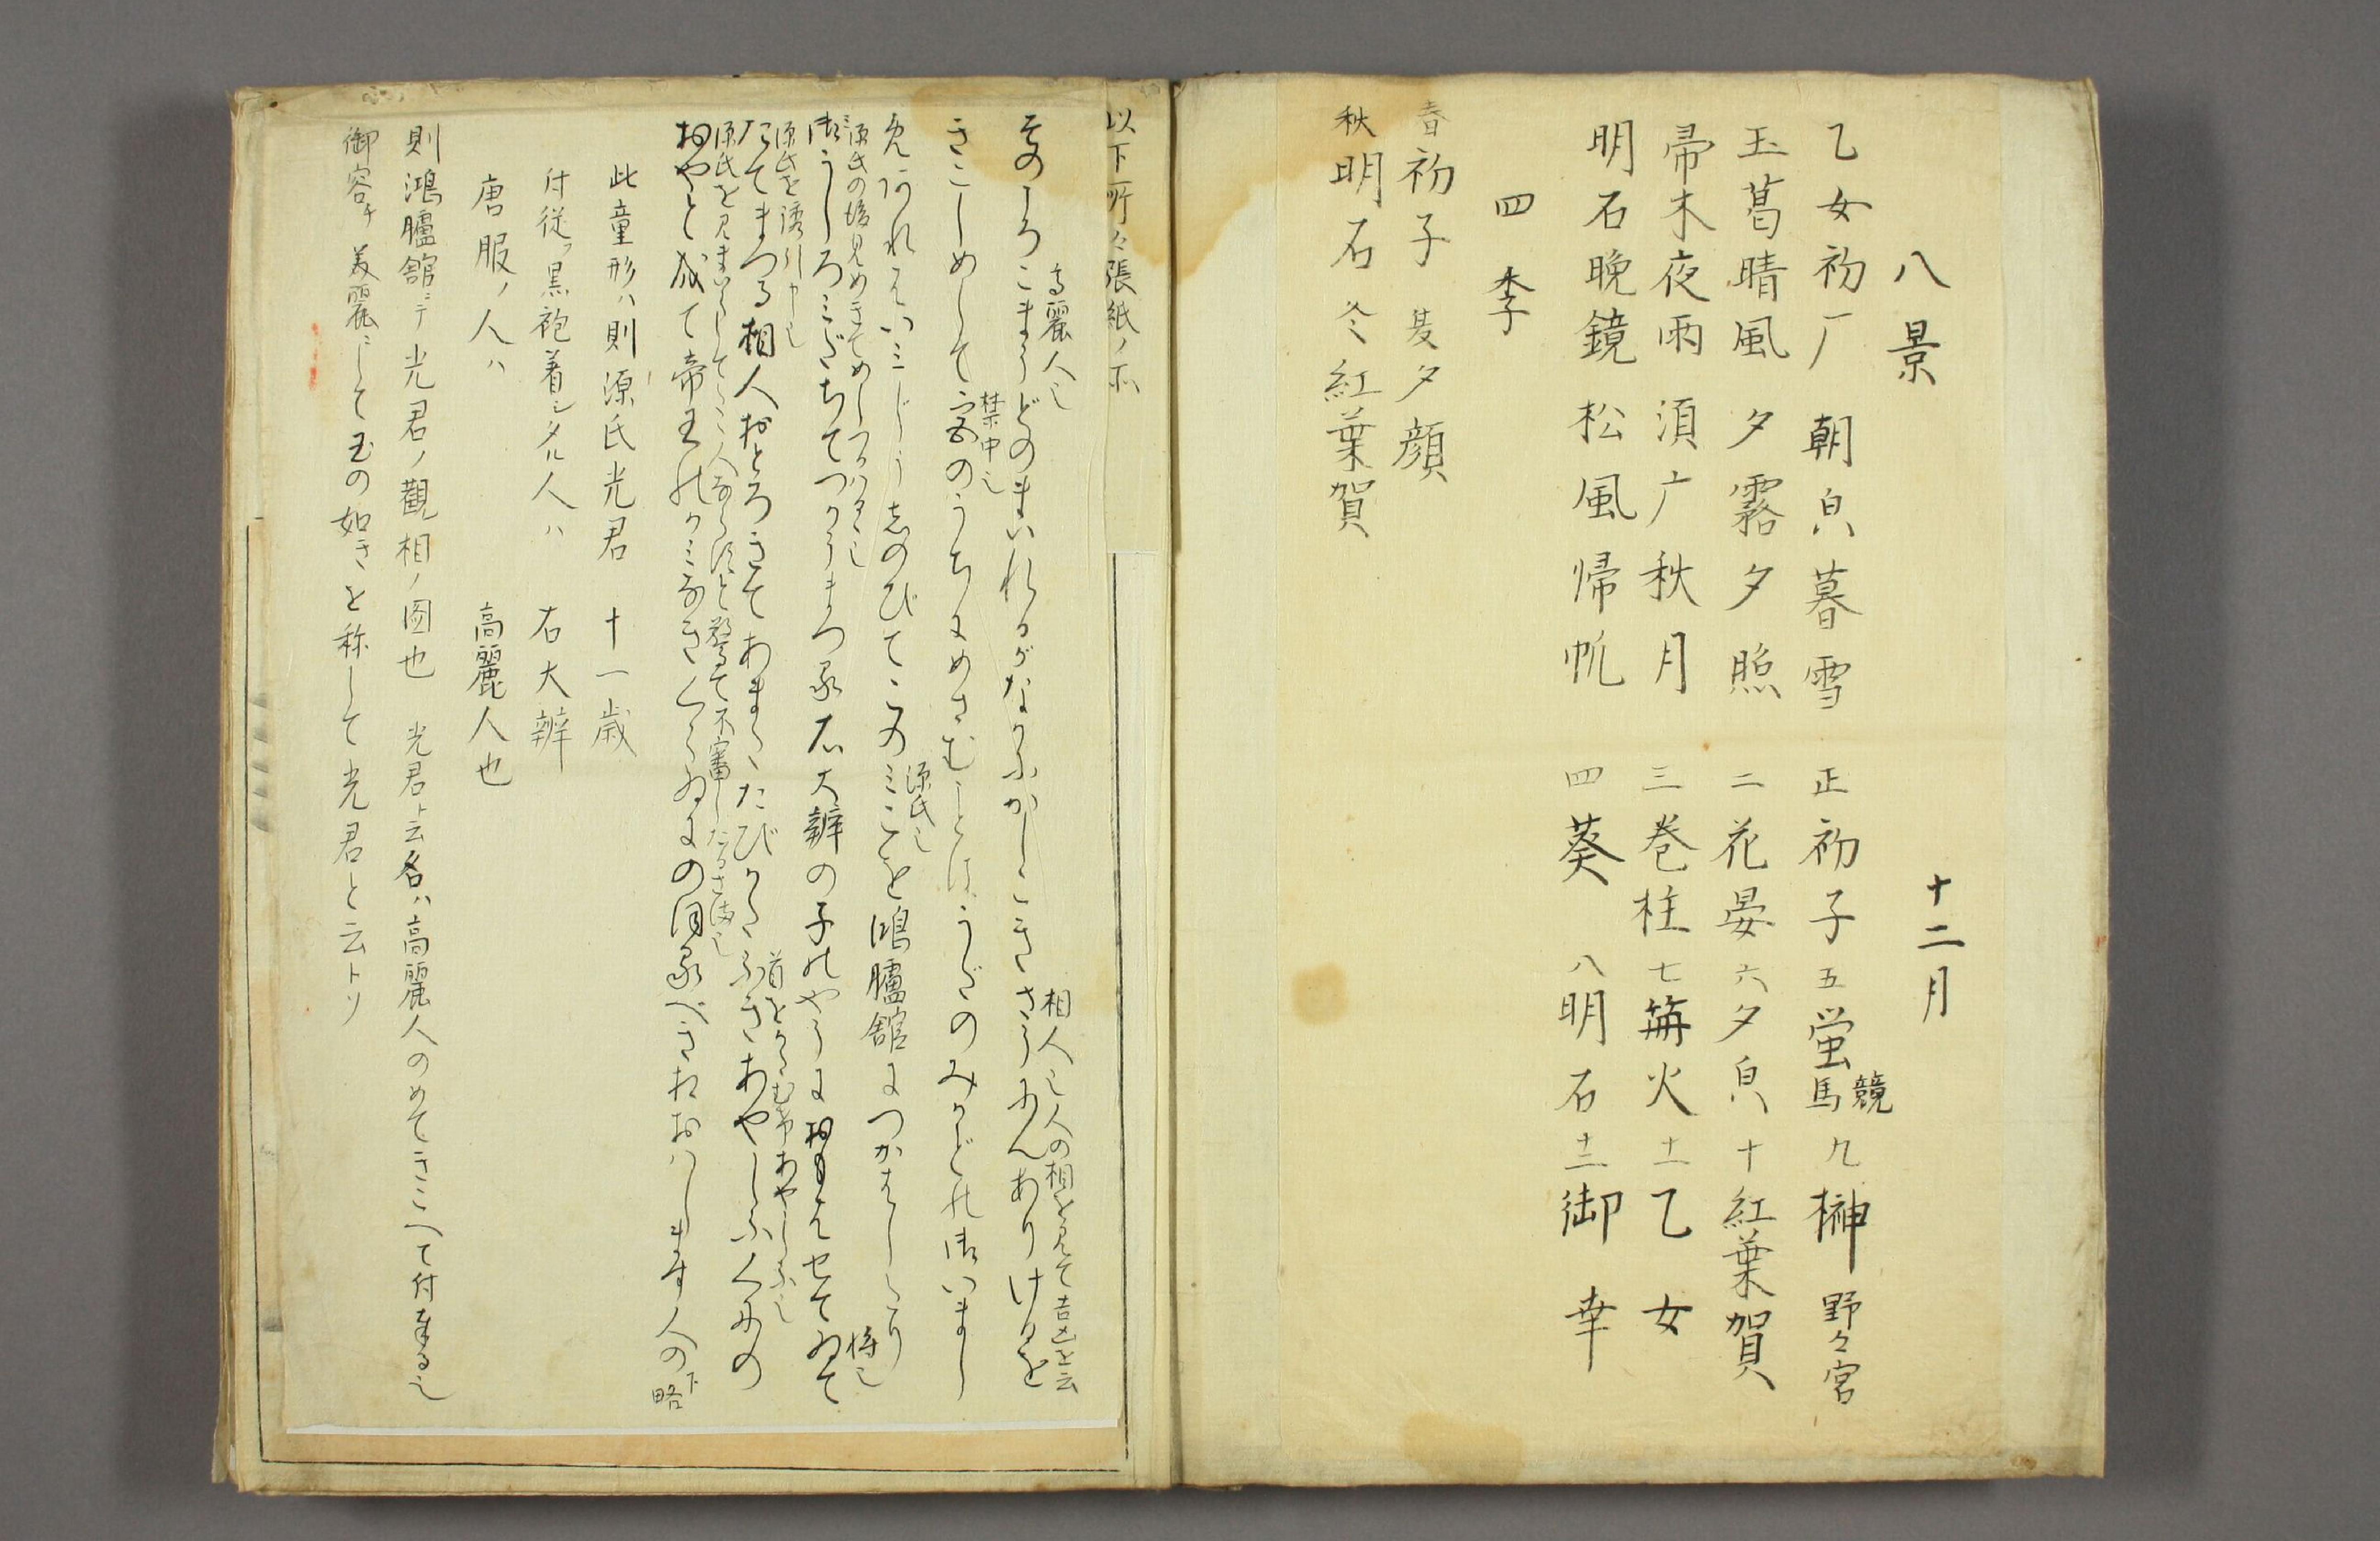 八景
乙女初厂 朝㒵暮雪
玉葛晴風 夕霧夕照
帚木夜雨 須广秋月
明石晩鏡 松風帰帆
四季
春初子 夏夕顔
秋明石 冬紅葉賀
十二月
正初子 五蛍競馬 九榊野々宮
二花宴 六夕㒵 十紅葉賀
三巻柱 七篝火 十一乙女
四葵 八明石 十二御幸
以下所々張紙ノ分
高麗人也
相人也人の相を見て吉凶を云
そのころこまうどのまいれるがなかにかしこきさうにんありけるを
禁中也
きこしめして宮のうちにめさむことはうだのみかどの御いまし
源氏也
めあればいみじうしのびてこのみこを鴻臚舘につかはしたり
源氏の後見めきてめしつるる也
将也
御うしろみだちてつかうまつる右大辨の子のやうにおもはせてゐて
源氏を誘引申也
首をかたむけあやしふ也
たてまつる相人おとろきてあまたたびかたふきあやしふくにの
源氏を見まいらしてたゝ人ならすと驚て不審したるさま也
おやと成て帝王のかみなきくらゐにのほるべき相おはします人の下略
此童形ハ則源氏光君 十一歳
付従フ黒袍着シタル人ハ 右大辨
唐服ノ人ハ 高麗人也
則鴻臚舘ニテ光君ノ觀相ノ図也 光君ト云名ハ高麗人のめてきこへて付奉る也
御容チ美麗にして玉の如きを称して光君と云トソ